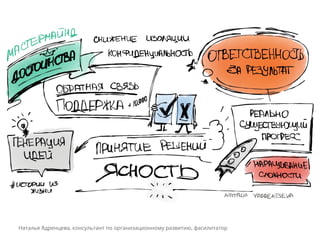 МАСТЕРМАЙНД
ДОСТОИНСТВА
СНИЖЕНИЕ ИЗОЛЯЦИИ
КОНФИДЕНЦИАЛЬНОСТЬ
ОТВЕТСТВЕННОСТЬ
ЗА РЕЗУЛЬТАТ
ОБРАТНАЯ СВЯЗЬ
ПОДДЕРЖКА
РЕАЛЬНО
СУЩЕСТВУЮЩИЙ
ПРОГРЕСС
ГЕНЕРАЦИЯ
ИДЕЙ
ПРИНЯТИЕ РЕШЕНИЙ
ЯСНОСТЬ
НАРАЩИВАНИЕ
СЛОЖНОСТИ
#ИСТОРИИ ИЗ
ЖИЗНИ
Наталья Ядренцева, консультант по организационному развитию, фасилитатор